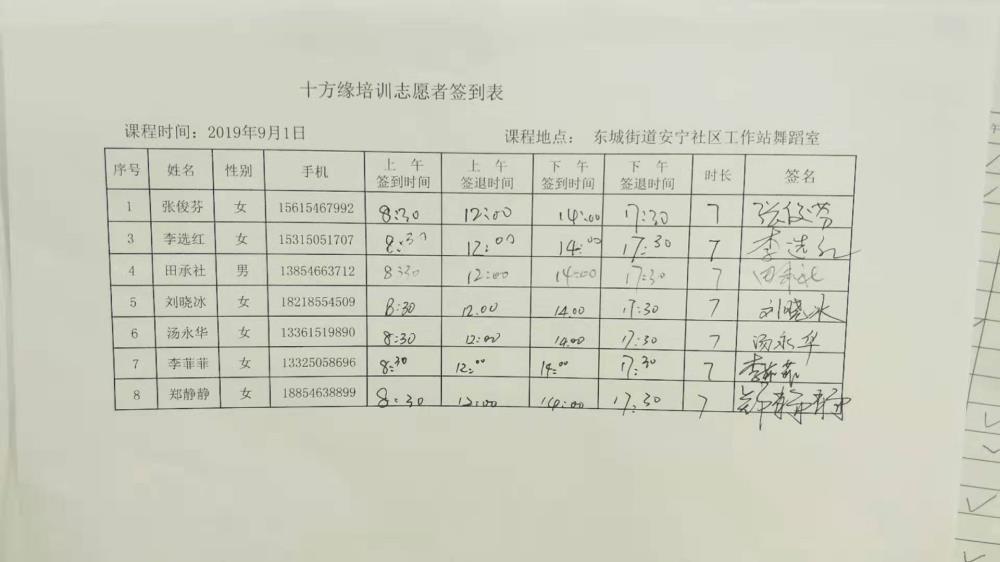 十方缘培训志愿者签到表
课程时间：2019年9月1日 课程地点： 东城街道安宁社区工作站舞蹈室
序号 姓名 性别 手机 上 午 签到时间 上 午 签退时间 下 午 签到时间 下 午 签退时间 时长 签名
1 张俊芬 女 15615467992 8:30 12:00 14:00 17:30 7 张俊芬
3 李选红 女 15315051707 8:30 12:00 14:00 17:30 7 李选红
4 田承社 男 13854663712 8:30 12:00 14:00 17:30 7 田承社
5 刘晓冰 女 18218554509 8:30 12.00 14.00 17:30 7 刘晓冰
6 汤永华 女 13361519890 8:30 12:00 14:00 17:30 7 汤永华
7 李菲菲 女 13325058696 8:30 12:00 14:00 17:30 7 李菲菲
8 郑静静 女 18854638899 8:30 12:00 14:00 17:30 7 郑静静